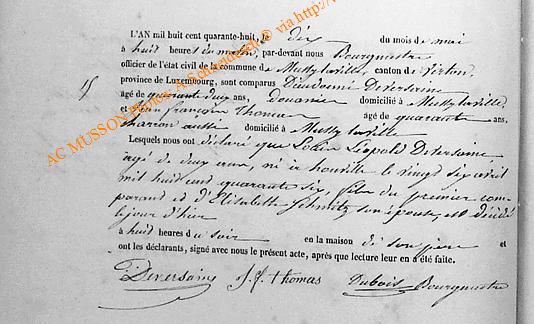 L'AN mil huit cent quarante-huit, le dix du mois de mai
à huit heures du matin, par-devant nous Bourgmestre
officier de l'état civil de la commune de Mussy la ville, canton de Virton,
province de Luxembourg, sont comparus Dieudonné Deversaine
15
âgé de quarante deux ans, Douanier domicilié à Mussy la ville
et Jean françois Thomas âgé de quarante ans,
charron aussi domicilié à Mussy la ville
Lesquels nous ont déclaré que Louis Léopold Deversaine
âgé de deux ans, né à houville le vingt six avril
mil huit cent quarante six, fils du premier com-
parant et d'Elisabeth Schmitz son épouse, est décédé
le jour d'hier
à huit heures du soir en la maison de son père et
ont les déclarants, signé avec nous le présent acte, après que lecture leur en a été faite.
Deversaine J. f. Thomas Dubois Bourgmestre
AC MUSSON Photos: A.Schneidesch © via http://